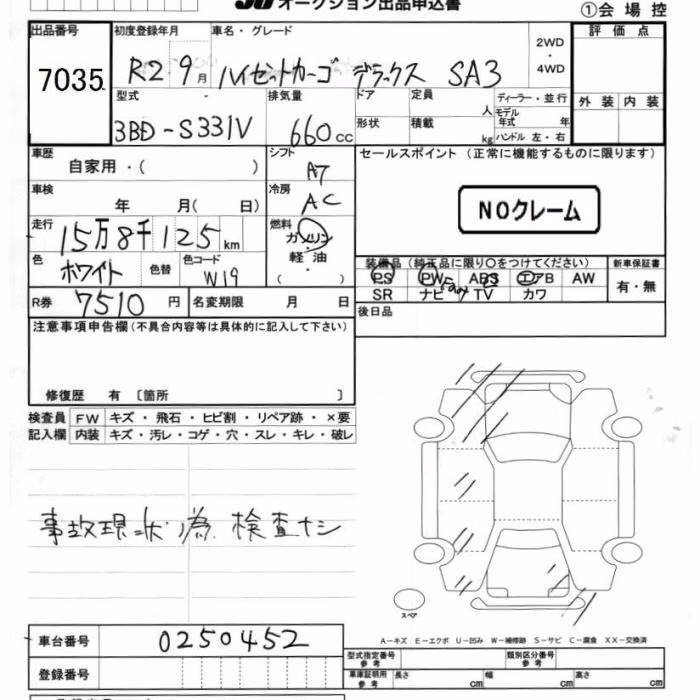 オークション出品申込書
①会場控
出品番号 初度登録年月 車名・グレード 2WD・4WD 評価点
7035 R2 9月 ハイゼットカーゴ デラックス SA3
型式 排気量 ドア 定員 人 ディーラー・並行 外装 内装
3BD-S331V 660cc 形状 積載 kg モデル年式 年
ハンドル 左・右
車歴 シフト セールスポイント (正常に機能するものに限ります)
自家用・( ) A7
車検 冷房 NOクレーム
年 月( 日) AC
走行 燃料
15万8千125km ガソリン・軽油
( )
色 色替 色コード 装備品 (純正品に限り○をつけてください) 新車保証書
ホワイト W19 PS PW ABS エアB AW 有・無
SR ナビ TV カワ
R券 7510円 名変期限 月 日 後日品
注意事項申告欄(不具合内容等は具体的に記入して下さい)
修復歴 有 〔箇所 〕
検査員 FW キズ・飛石・ヒビ割・リペア跡・×要
記入欄 内装 キズ・汚レ・コゲ・穴・スレ・キレ・破レ
事故現状 為 検査ナシ
スペア
A-キズ E-エクボ U-凹み W-補修跡 S-サビ C-腐食 XX-交換済
車台番号 0250452
型式指定番号 参考 類別区分番号 参考
登録番号 車庫証明用 参考 長さ cm 幅 cm 高さ cm